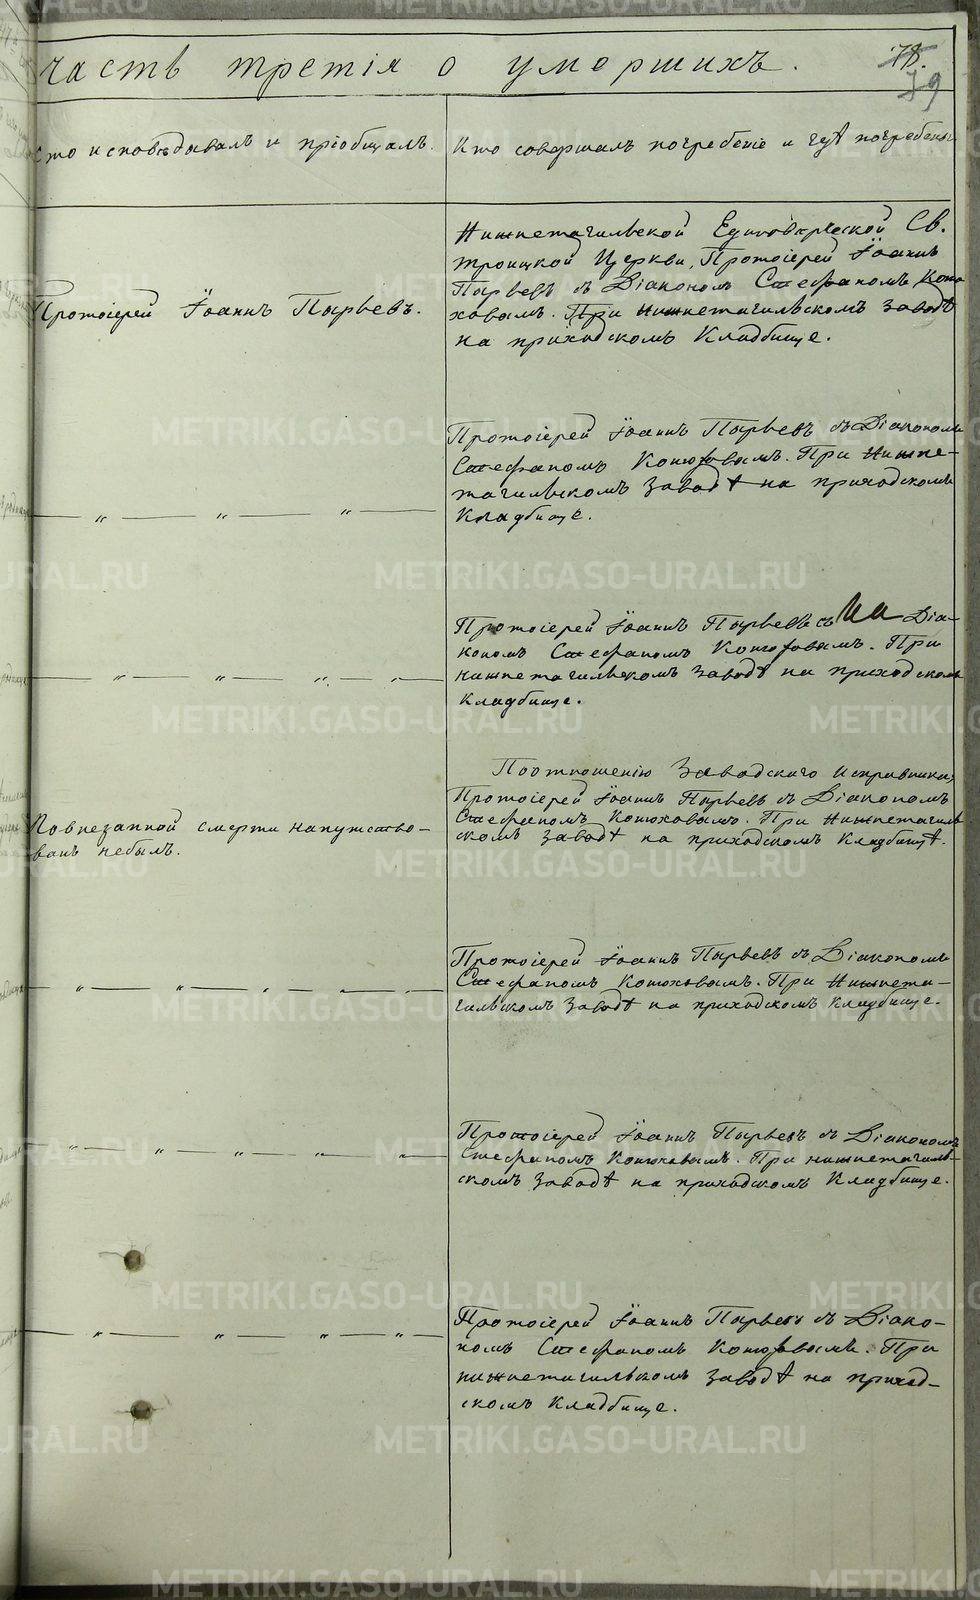 часть третія о умершихъ.
78.
79
Кто исповѣдывалъ и пріобщалъ.
Кто совершалъ погребеніе и гдѣ погребены
Протоіерей Іоаннъ Пырьевъ.
Нижнетагильской Единовѣрческой Св.
Троицкой Церкви, Протоіерей Іоаннъ
Пырьевъ съ Діакономъ Стефаномъ Коню-
ховымъ. При Нижнетагильскомъ заводѣ
на приходскомъ Кладбище.
Протоіерей Іоаннъ Пырьевъ съ Діакономъ
Стефаномъ Конюховымъ. При Нижне-
тагильскомъ заводѣ на приходскомъ
Кладбище.
— „ — „ — „ —
Протоіерей Іоаннъ Пырьевъ съ Діа-
кономъ Стефаномъ Конюховымъ. При
нижнетагильскомъ заводѣ на приходскомъ
Кладбище.
— „ — „ — „ — „ —
Повнезапной смерти напутство-
ванъ небылъ.
Поотношенію Заводскаго Исправника,
Протоіерей Іоаннъ Пырьевъ съ Діакономъ
Стефаномъ Конюховымъ. При Нижнетагиль-
скомъ заводѣ на приходскомъ Кладбищѣ.
Протоіерей Іоаннъ Пырьевъ съ Діакономъ
Стефаномъ Конюховымъ. При Нижнета-
гильскомъ заводѣ на приходскомъ Кладбище.
— „ — „ — „ — „ — „ —
Протоіерей Іоаннъ Пырьевъ съ Діакономъ
Стефаномъ Конюховымъ. При нижнетагиль-
скомъ заводѣ на приходскомъ Кладбище.
— „ — „ — „ — „ — „ —
Протоіерей Іоаннъ Пырьевъ съ Діако-
номъ Стефаномъ Конюховымъ. При
нижнетагильскомъ заводѣ на приход-
скомъ Кладбище.
— „ — „ — „ — „ —
METRIKI.GASO-URAL.RU